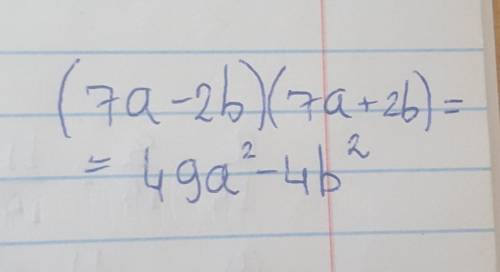 (7a-2b)(7a+2b)=
=49a²-4b²